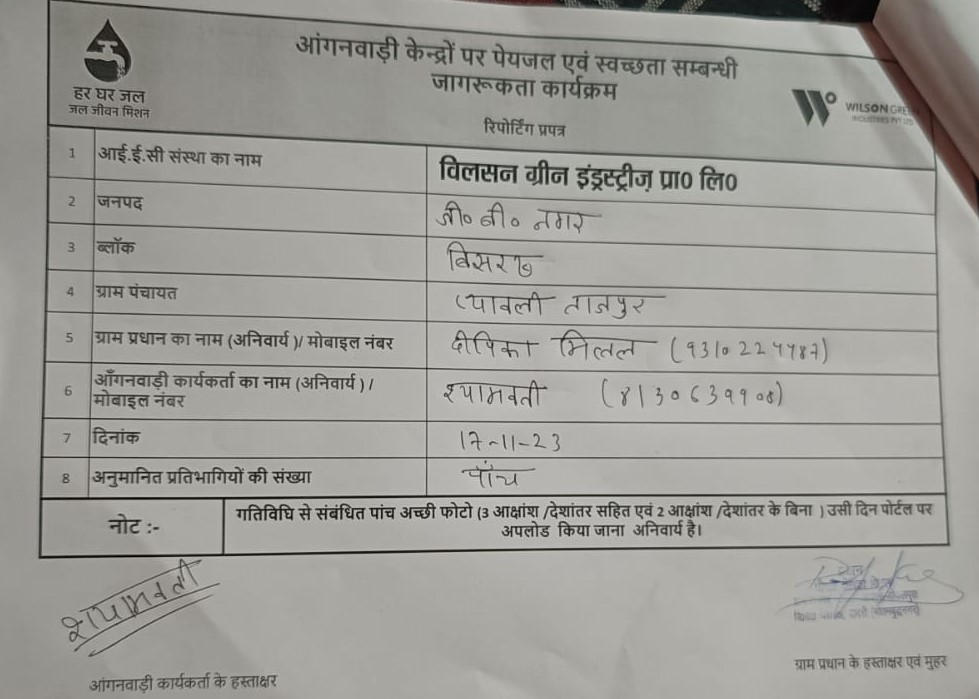 हर घर जल
जल जीवन मिशन
आंगनवाड़ी केन्द्रों पर पेयजल एवं स्वच्छता सम्बन्धी
जागरूकता कार्यक्रम
रिपोर्टिंग प्रपत्र
WILSON GREEN
INDUSTRIES PVT LTD
1 आई.ई.सी संस्था का नाम विलसन ग्रीन इंड्रस्ट्रीज़ प्रा० लि०
2 जनपद जी० बी० नगर
3 ब्लॉक बिसरख
4 ग्राम पंचायत प्यावली ताजपुर
5 ग्राम प्रधान का नाम (अनिवार्य )/ मोबाइल नंबर दीपिका
6 आँगनवाड़ी कार्यकर्ता का नाम (अनिवार्य ) /
मोबाइल नंबर श्यामवती (8130639908)
7 दिनांक 17-11-23
8 अनुमानित प्रतिभागियों की संख्या पाँच
नोट :- गतिविधि से संबंधित पांच अच्छी फोटो (3 आक्षांश /देशांतर सहित एवं 2 आक्षांश /देशांतर के बिना ) उसी दिन पोर्टल पर
अपलोड किया जाना अनिवार्य है।
श्यामवती
आंगनवाड़ी कार्यकर्ता के हस्ताक्षर
ग्राम प्रधान के हस्ताक्षर एवं मुहर